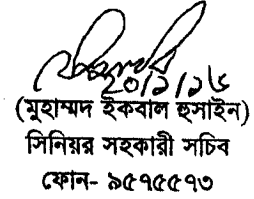 ২০/১/১৬
(মুহাম্মদ ইকবাল হুসাইন)
সিনিয়র সহকারী সচিব
ফোন- ৯৫৭৫৫৭৩